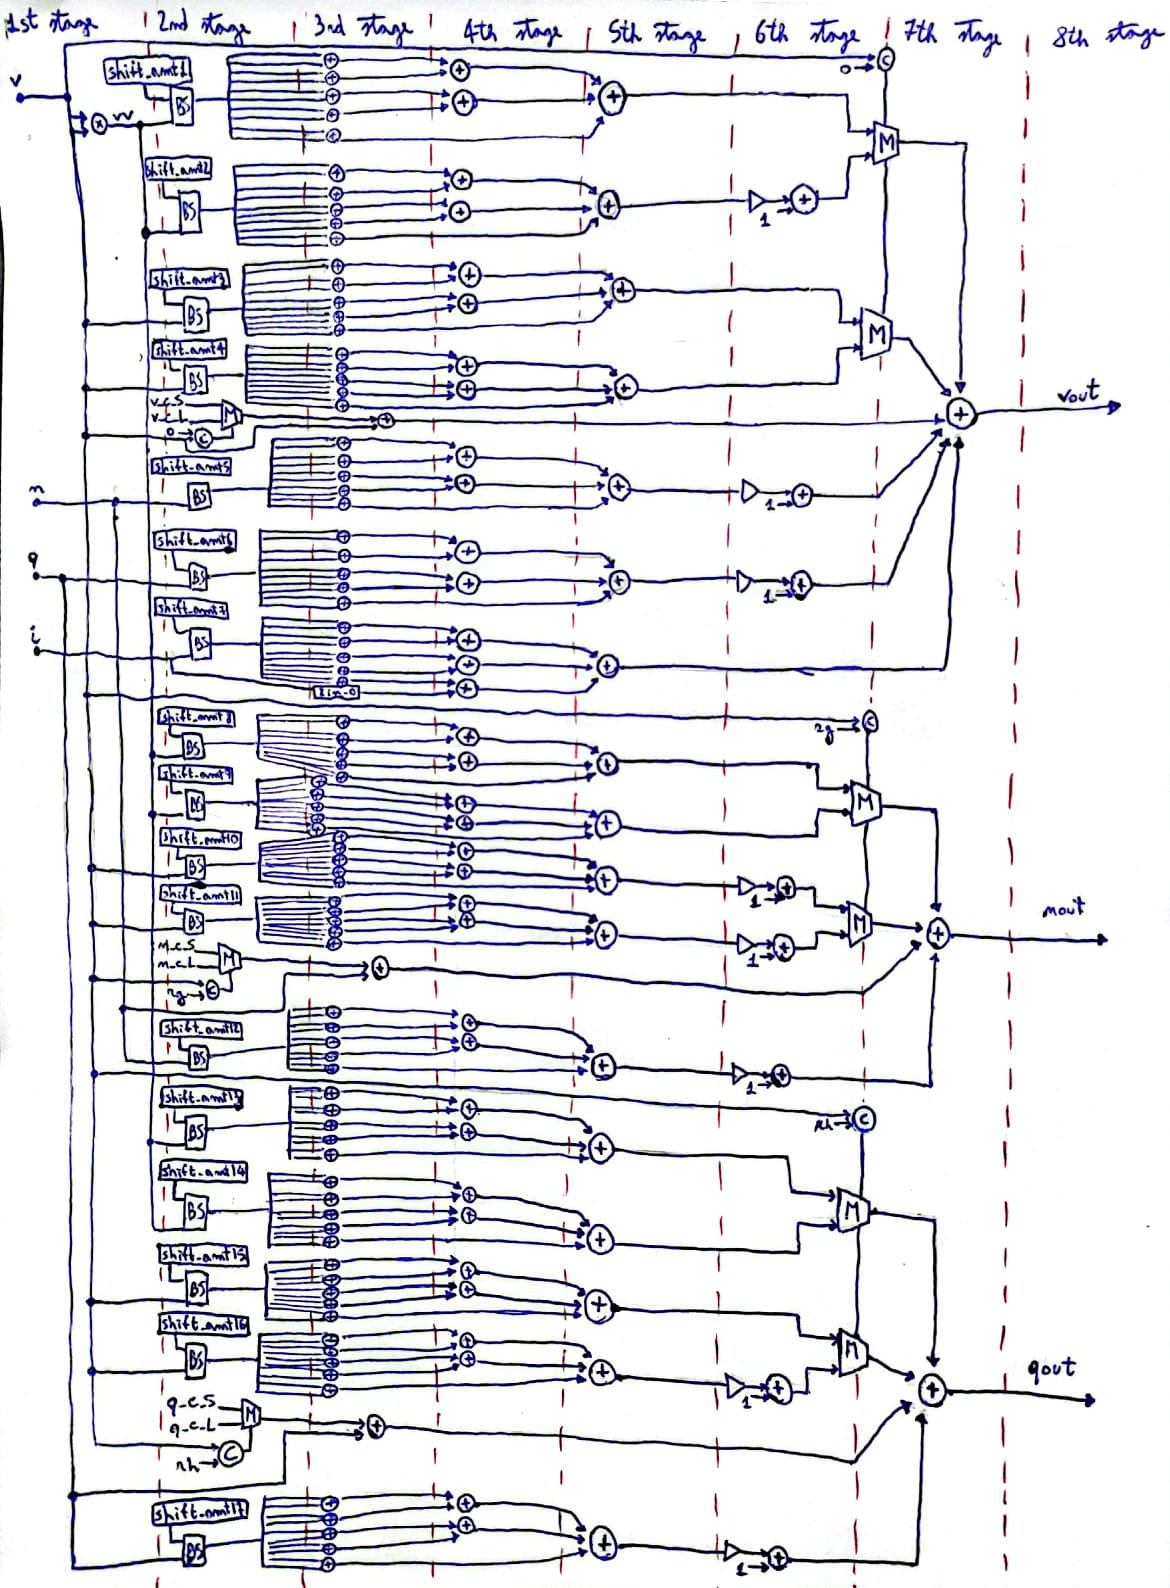 1st stage 2nd stage 3rd stage 4th stage 5th stage 6th stage 7th stage 8th stage
shift_amt1
0 C
v
BS
× vv
M
shift_amt2
BS
1
shift_amt3
BS
M
shift_amt4
BS
v_c_S
v_c_L M
0 C
vout
shift_amt5
n
BS
1
shift_amt6
q
BS
1
shift_amt7
i
BS
Iin_0
shift_amt8
rg C
BS
shift_amt9
BS
M
shift_amt10
BS
1
shift_amt11
BS
M
1
nout
n_c_S
n_c_L M
rg C
shift_amt12
BS
1
shift_amt13
rh C
BS
shift_amt14
BS
M
shift_amt15
BS
shift_amt16
M
BS
1
qout
q_c_S
q_c_L M
rh C
shift_amt17
BS
1